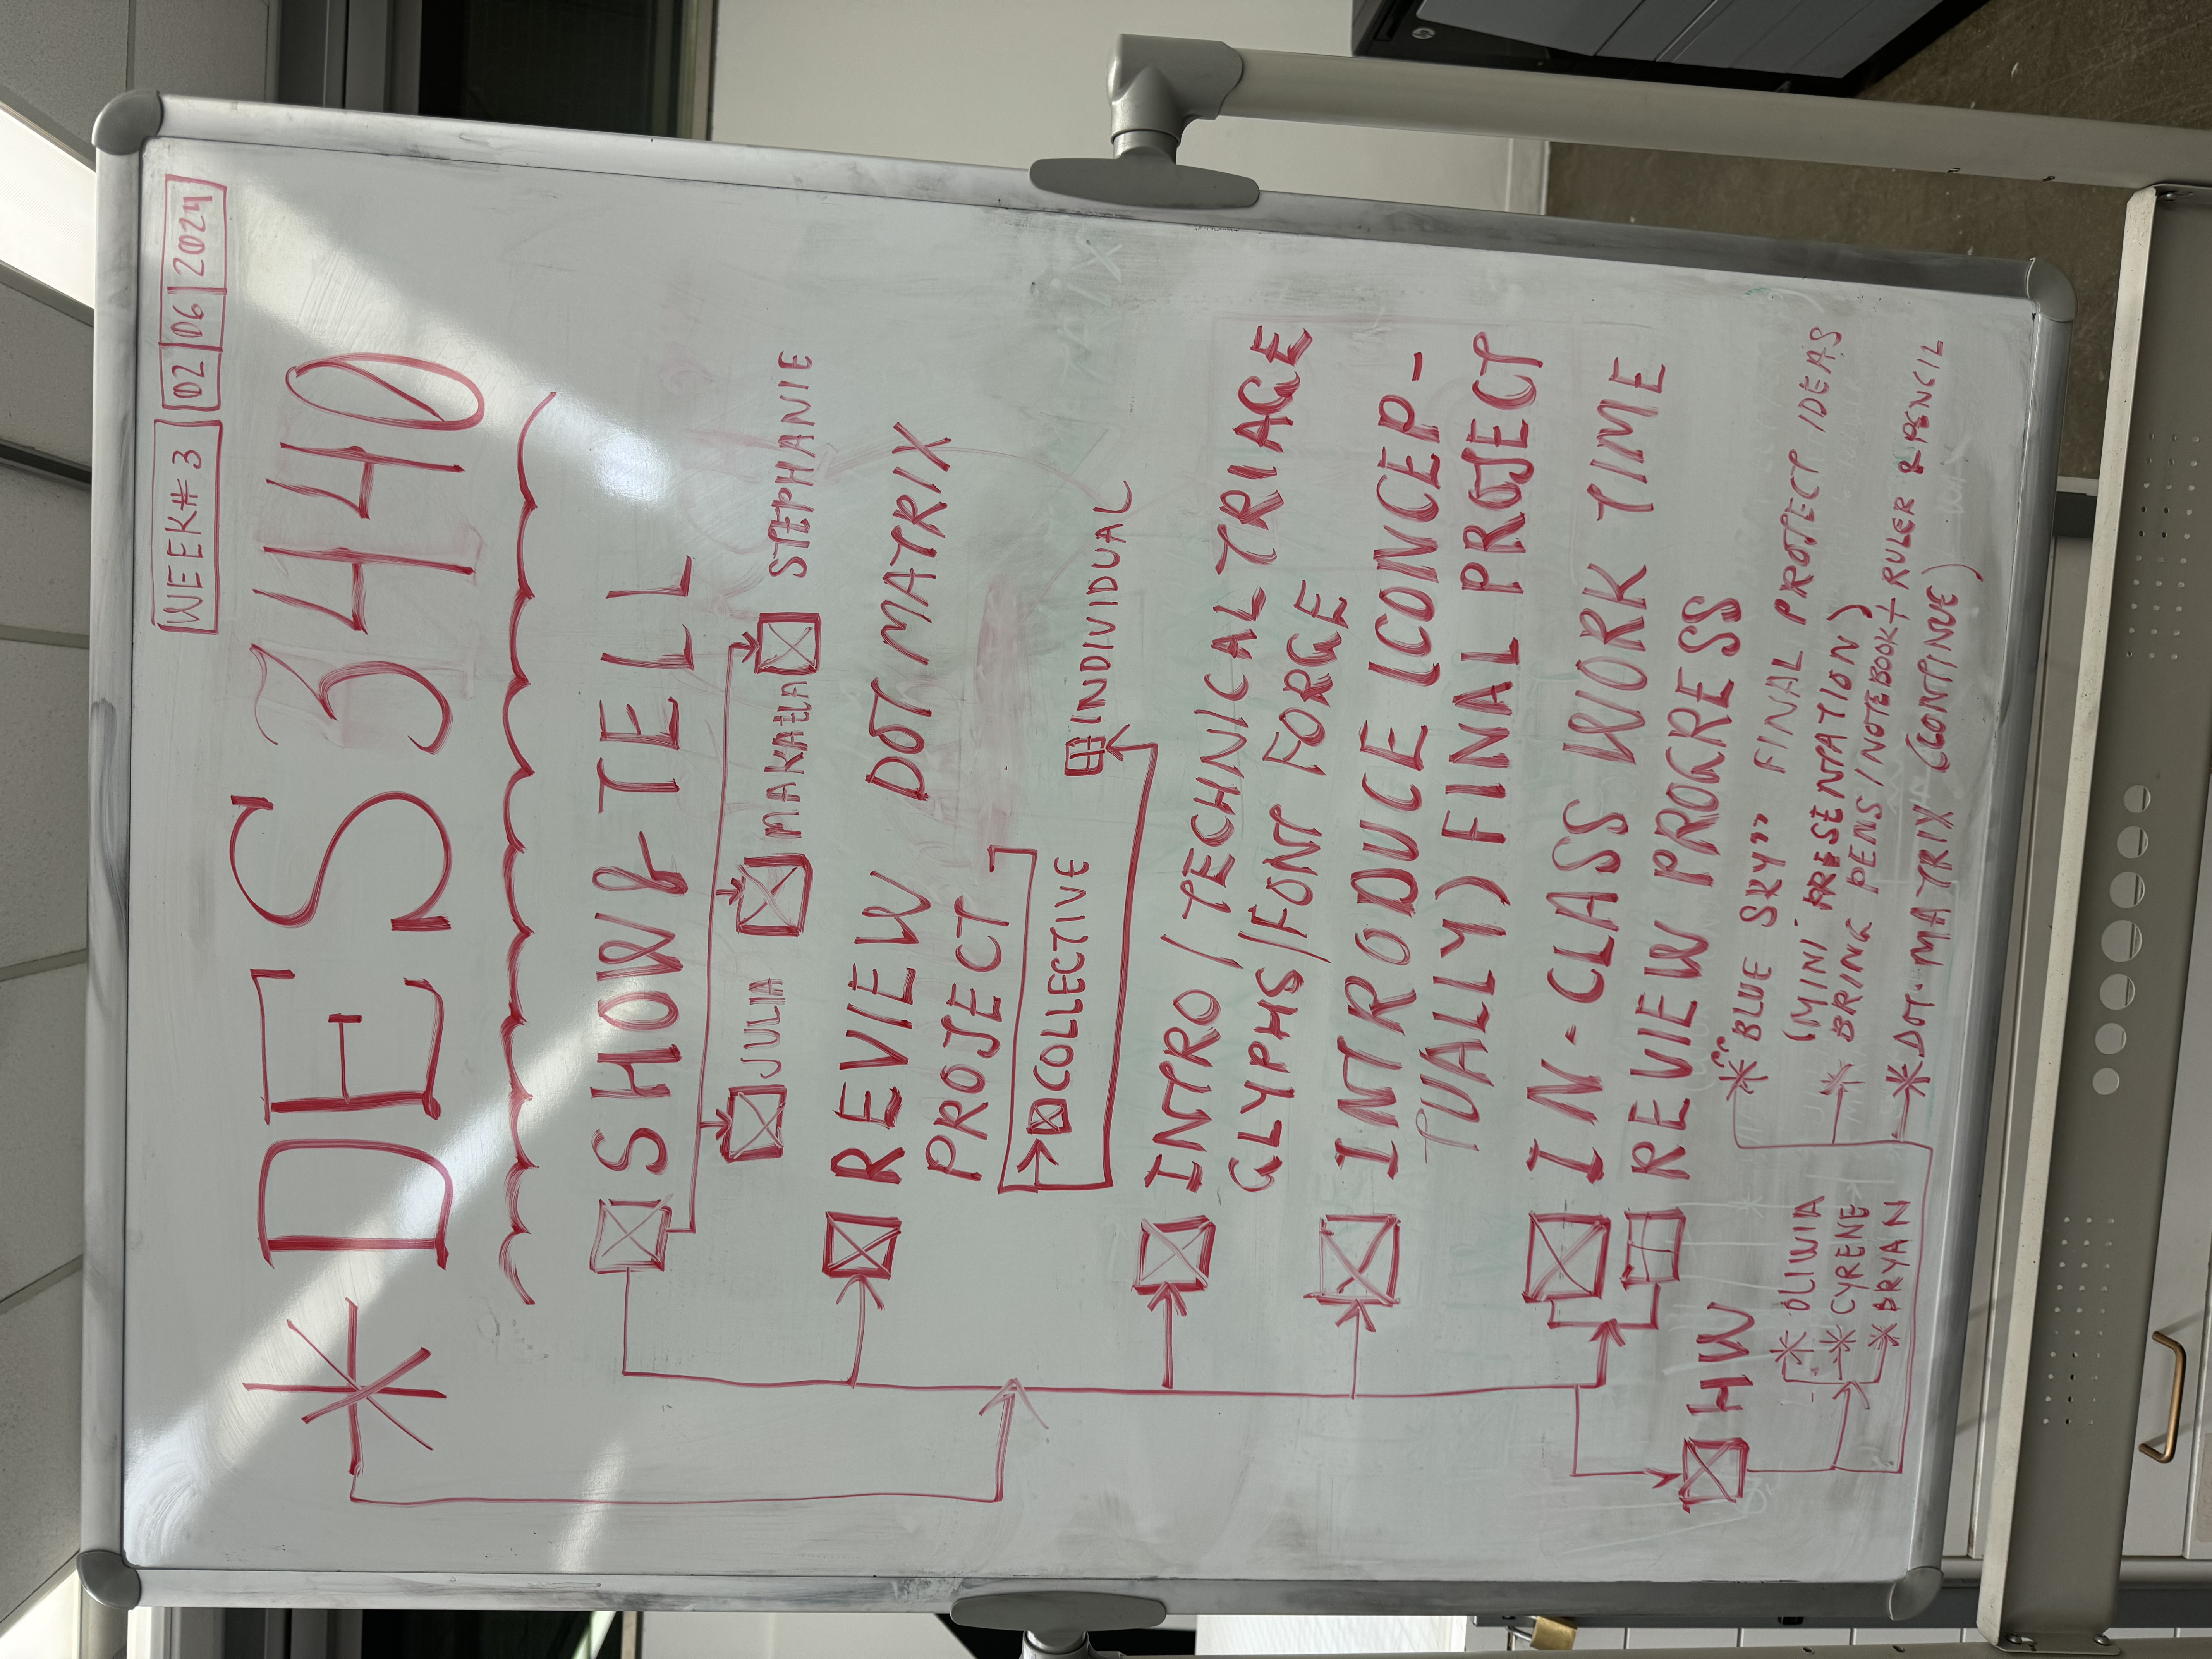 WEEK#3 02 06 2024
*DES 340
SHOW & TELL
JULIA MAKAELA STEPHANIE
REVIEW DOT MATRIX
PROJECT
COLLECTIVE
INDIVIDUAL
INTRO / TECHNICAL TRIAGE
GLYPHS/FONT FORGE
INTRODUCE (CONCEP-
TUALLY) FINAL PROJECT
IN-CLASS WORK TIME
REVIEW PROGRESS
HW
* OLIWIA
* CYRENE
* BRYAN
* "BLUE SKY" FINAL PROJECT IDEAS
(MINI PRESENTATION)
* BRING PENS/NOTEBOOK + RULER & PENCIL
* DOT-MATRIX (CONTINUE)